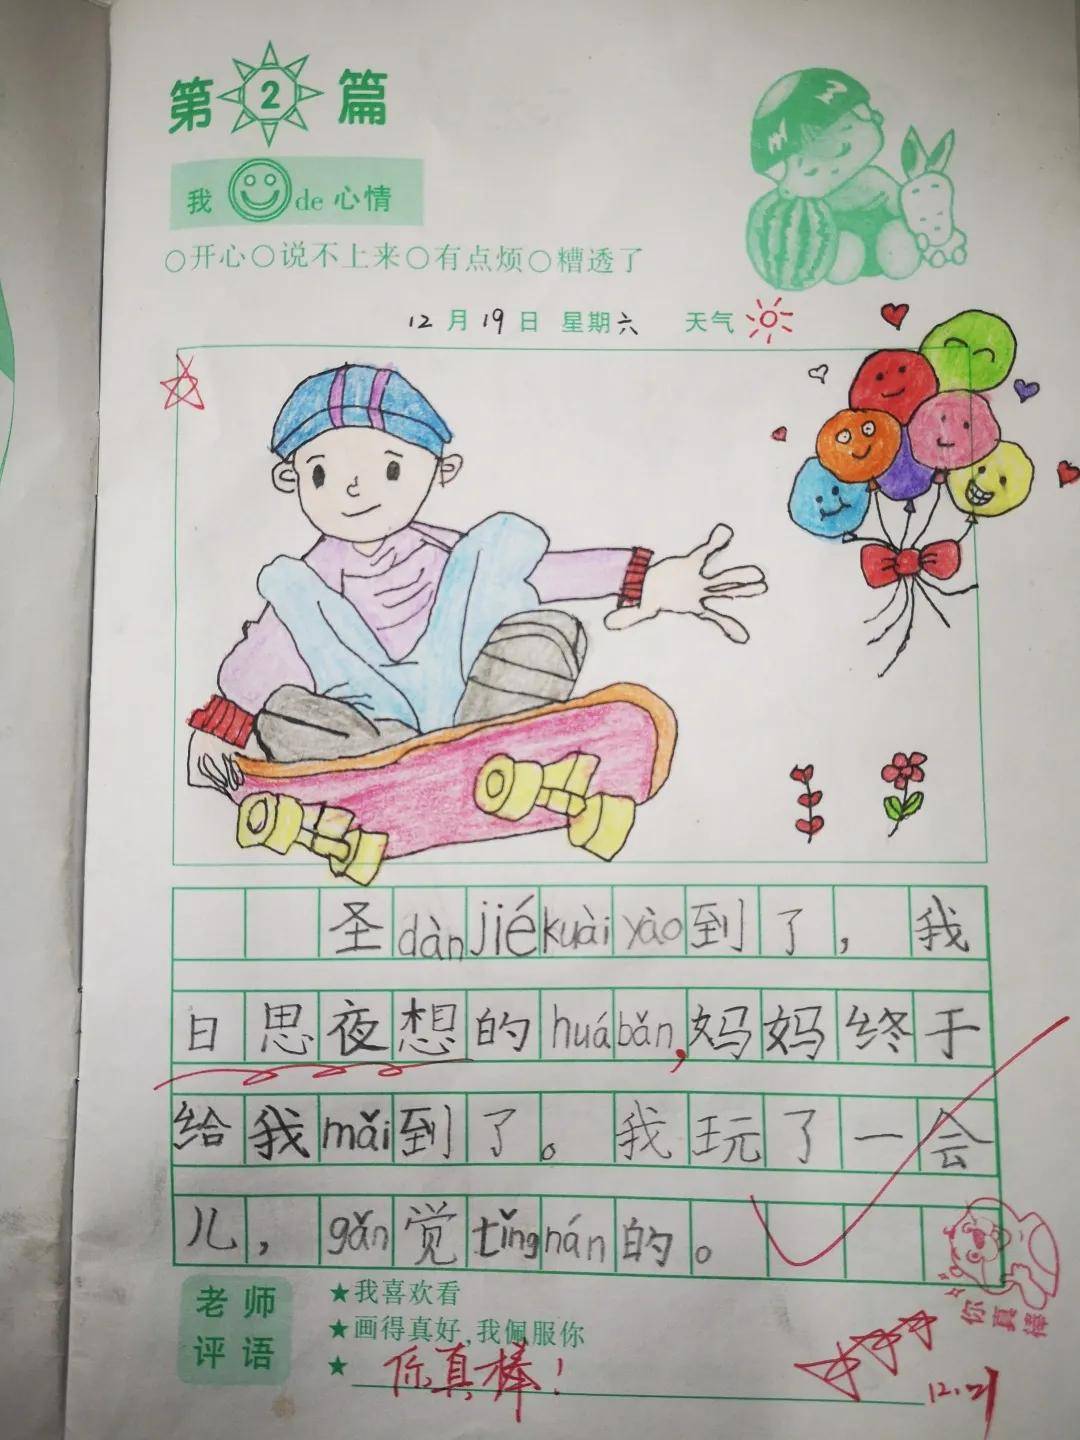 第2篇
我de心情
○开心○说不上来○有点烦○糟透了
12月19日 星期六 天气
圣dànjiékuàiyào到了，我
日思夜想的huábǎn,妈妈终于
给我mǎi到了。我玩了一会
儿，gǎn觉tǐngnán的。
老师评语
★我喜欢看
★画得真好,我佩服你
★你真棒！
你真棒
12.21